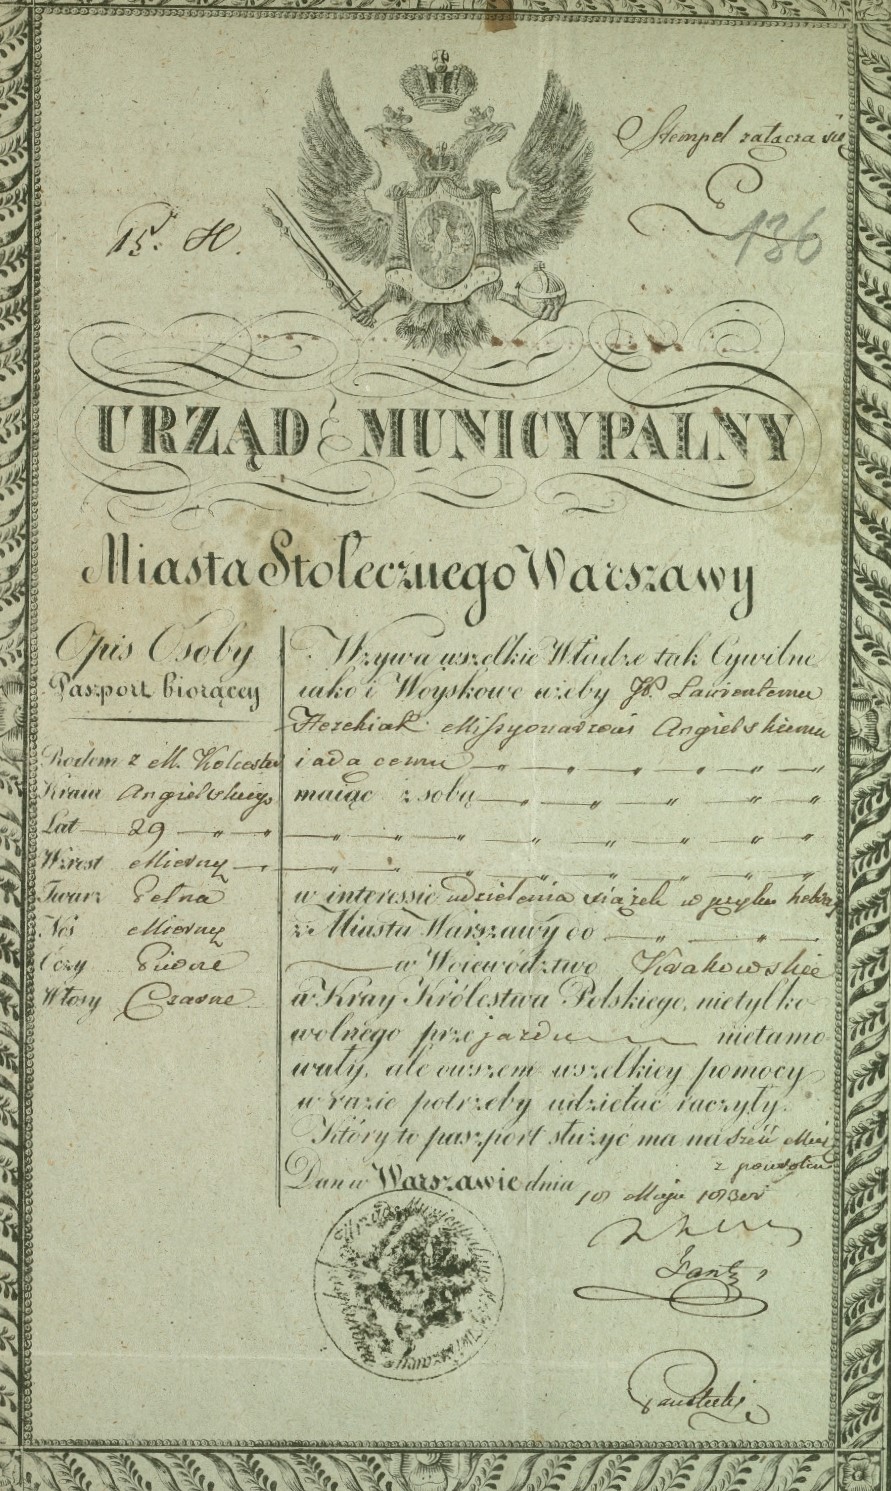 Stempel załącza się
15. H.
136
URZĄD MUNICYPALNY
Miasta Stołecznego Warszawy
Opis Osoby
Paszport biorącey
Rodem z M. Kolcester
Kraiu Angielskiego
Lat 29
Wzrost Mierny
Twarz Pełna
Nos Mierny
Oczy Piwne
Włosy Czarne
Wzywa wszelkie Władze tak Cywilne
iako i Woyskowe ażeby JP. Lawrentemu
Hezekiah Missyonarzowi Angielskiemu
iadącemu
maiąc z sobą
w interessie udzielenia xiążek w języku hebr
z Miasta Warszawy do
w Woiewództwo Krakowskie
a Kray Królestwa Polskiego, nietylko
wolnego przejazdu nietamo
wały, ale owszem wszelkiey pomocy
w razie potrzeby udzielać raczyły.
Który to paszport służyć ma na sześć Mies
z powrotem
Dan w Warszawie dnia
18 Maja
Lantz